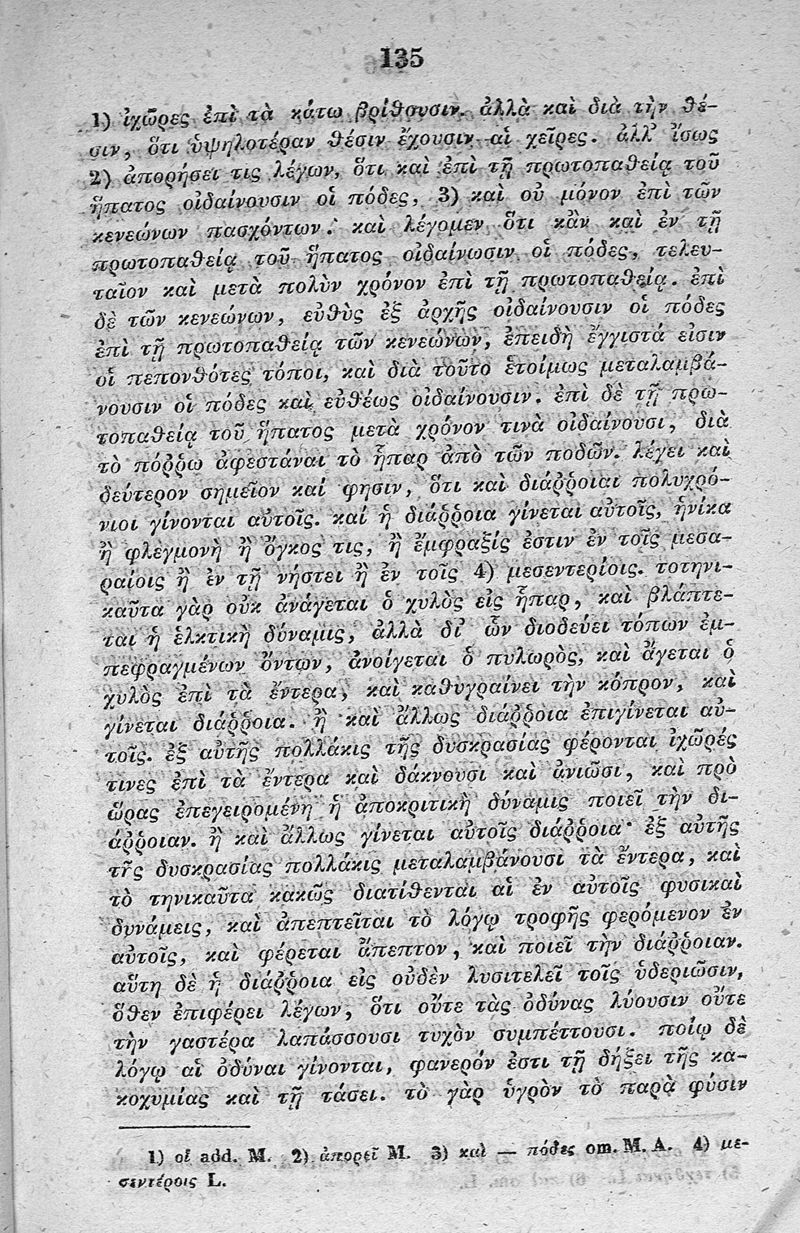 135
1) ἰχῶρες ἐπὶ τὰ κάτω βρίθουσιν. ἀλλὰ καὶ διὰ τὴν θέ-
σιν, ὅτι ὑψηλοτέραν θέσιν ἔχουσιν αἱ χεῖρες. ἀλλ' ἴσως
2) ἀπορήσει τις λέγων, ὅτι καὶ ἐπὶ τῇ πρωτοπαθείᾳ τοῦ
ἥπατος οἰδαίνουσιν οἱ πόδες, 3) καὶ οὐ μόνον ἐπὶ τῶν
κενεώνων πασχόντων· καὶ λέγομεν ὅτι κἂν καὶ ἐν τῇ
πρωτοπαθείᾳ τοῦ ἥπατος οἰδαίνωσιν οἱ πόδες, τελευ-
ταῖον καὶ μετὰ πολὺν χρόνον ἐπὶ τῇ πρωτοπαθείᾳ. ἐπὶ
δὲ τῶν κενεώνων, εὐθὺς ἐξ ἀρχῆς οἰδαίνουσιν οἱ πόδες
ἐπὶ τῇ πρωτοπαθείᾳ τῶν κενεώνων, ἐπειδὴ ἔγγιστά εἰσιν
οἱ πεπονθότες τόποι, καὶ διὰ τοῦτο ἑτοίμως μεταλαμβά-
νουσιν οἱ πόδες καὶ εὐθέως οἰδαίνουσιν. ἐπὶ δὲ τῇ πρω-
τοπαθείᾳ τοῦ ἥπατος μετὰ χρόνον τινὰ οἰδαίνουσι, διὰ
τὸ πόῤῥω ἀφεστάναι τὸ ἧπαρ ἀπὸ τῶν ποδῶν. λέγει καὶ
δεύτερον σημεῖον καί φησιν, ὅτι καὶ διάῤῥοιαι πολυχρό-
νιοι γίνονται αὐτοῖς. καί ἡ διάῤῥοια γίνεται αὐτοῖς, ἡνίκα
ἢ φλεγμονὴ ἢ ὄγκος τις, ἢ ἔμφραξίς ἐστιν ἐν τοῖς μεσα-
ραίοις ἢ ἐν τῇ νήστει ἢ ἐν τοῖς 4) μεσεντερίοις. τοτηνι-
καῦτα γὰρ οὐκ ἀνάγεται ὁ χυλὸς εἰς ἧπαρ, καὶ βλάπτε-
ται ἡ ἑλκτικὴ δύναμις, ἀλλὰ δι' ὧν διοδεύει τόπων ἐμ-
πεφραγμένων ὄντων, ἀνοίγεται ὁ πυλωρὸς, καὶ ἄγεται ὁ
χυλὸς ἐπὶ τὰ ἔντερα, καὶ καθυγραίνει τὴν κόπρον, καὶ
γίνεται διάῤῥοια. ἢ καὶ ἄλλως διάῤῥοια ἐπιγίνεται αὐ-
τοῖς. ἐξ αὐτῆς πολλάκις τῆς δυσκρασίας φέρονται ἰχῶρές
τινες ἐπὶ τὰ ἔντερα καὶ δάκνουσι καὶ ἀνιῶσι, καὶ πρὸ
ὥρας ἐπεγειρομένη ἡ ἀποκριτικὴ δύναμις ποιεῖ τὴν δι-
άῤῥοιαν. ἢ καὶ ἄλλως γίνεται αὐτοῖς διάῤῥοια· ἐξ αὐτῆς
τῆς δυσκρασίας πολλάκις μεταλαμβάνουσι τὰ ἔντερα, καὶ
τὸ τηνικαῦτα κακῶς διατίθενται αἱ ἐν αὐτοῖς φυσικαὶ
δυνάμεις, καὶ ἀπεπτεῖται τὸ λόγῳ τροφῆς φερόμενον ἐν
αὐτοῖς, καὶ φέρεται ἄπεπτον, καὶ ποιεῖ τὴν διάῤῥοιαν.
αὕτη δὲ ἡ διάῤῥοια εἰς οὐδὲν λυσιτελεῖ τοῖς ὑδεριῶσιν,
ὅθεν ἐπιφέρει λέγων, ὅτι οὔτε τὰς ὀδύνας λύουσιν οὔτε
τὴν γαστέρα λαπάσσουσι τυχὸν συμπέττουσι. ποίῳ δὲ
λόγῳ αἱ ὀδύναι γίνονται, φανερόν ἐστι τῇ δήξει τῆς κα-
κοχυμίας καὶ τῇ τάσει. τὸ γὰρ ὑγρὸν τὸ παρὰ φύσιν
1) οἱ add. M. 2) ἀπορεῖ M. 3) καὶ — πόδες om. M. A. 4) με-
σεντέροις L.